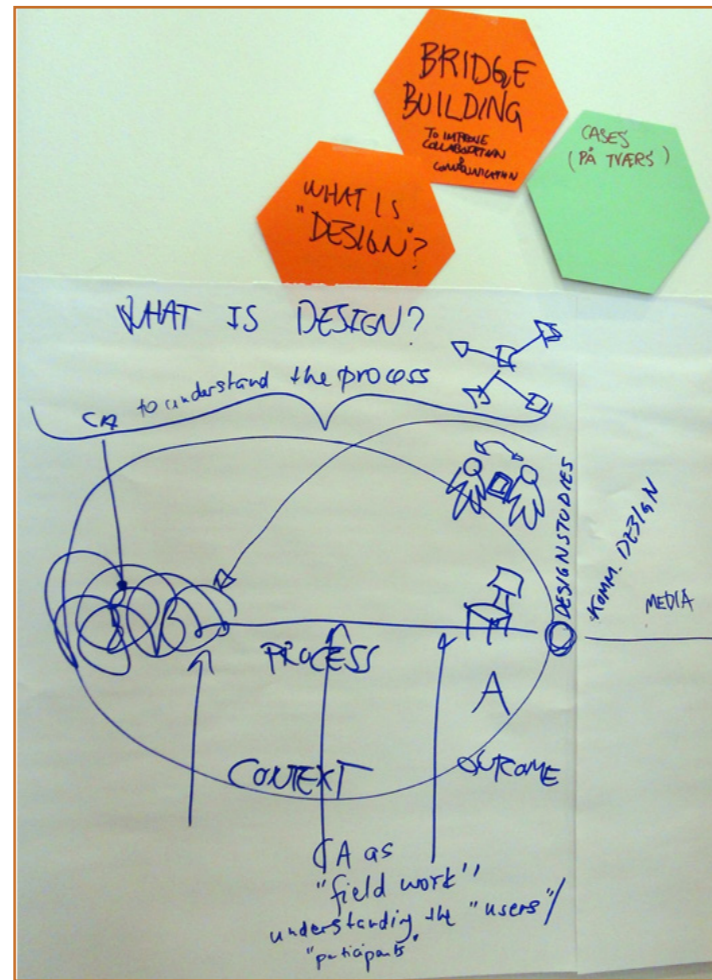 BRIDGE
BUILDING
TO IMPROVE
COLLABORATION
&
COMMUNICATION
CASES
(PÅ TVÆRS)
WHAT IS
"DESIGN"?
WHAT IS DESIGN?
CA to understand the process
DESIGNSTUDIES
KOMM. DESIGN
MEDIA
PROCESS
A
CONTEXT
OUTCOME
CA as
"field work"
understanding the "users"/
"participants"